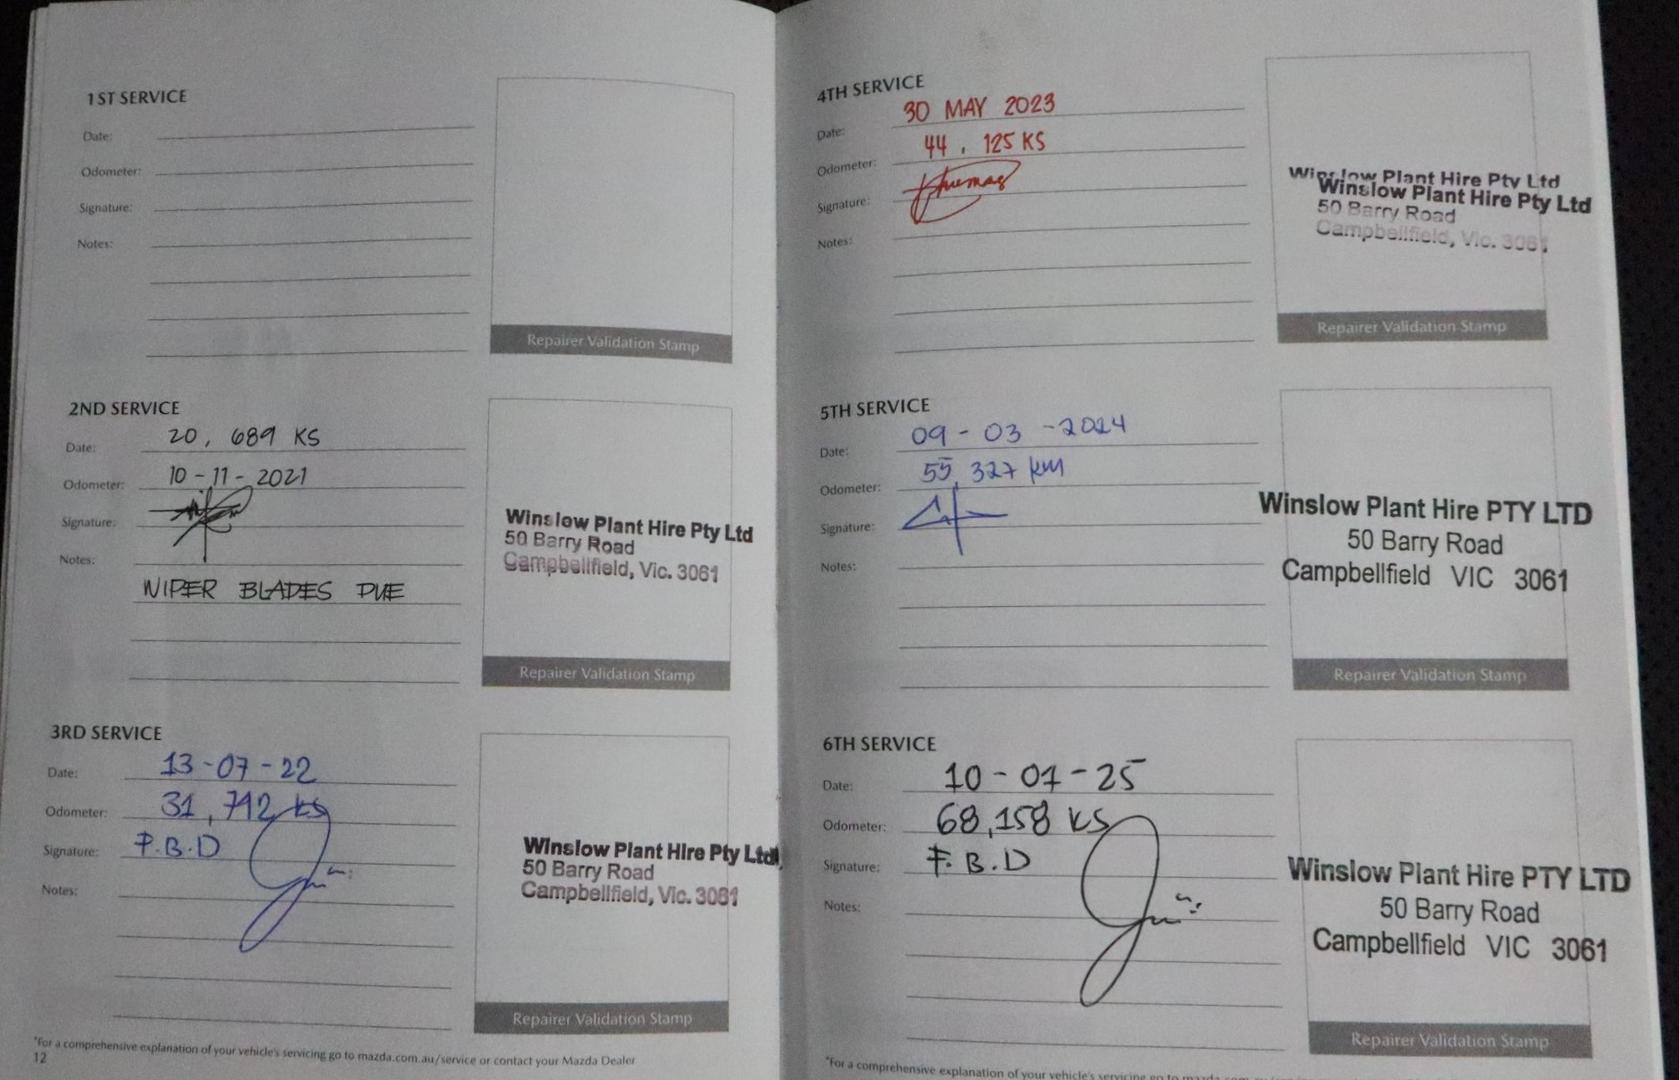 1ST SERVICE
Date:
Odometer:
Signature:
Notes:
Repairer Validation Stamp
2ND SERVICE
Date: 20, 689 KS
Odometer: 10-11-2021
Signature:
Notes:
WIPER BLADES DUE
Winslow Plant Hire Pty Ltd
50 Barry Road
Campbellfield, Vic. 3061
Repairer Validation Stamp
3RD SERVICE
Date: 13-07-22
Odometer: 31,742 KS
Signature: F.B.D
Notes:
Winslow Plant Hire Pty Ltd
50 Barry Road
Campbellfield, Vic. 3061
Repairer Validation Stamp
*For a comprehensive explanation of your vehicle's servicing go to mazda.com.au/service or contact your Mazda Dealer
12
4TH SERVICE
Date: 30 MAY 2023
Odometer: 44, 125 KS
Signature:
Notes:
Winslow Plant Hire Pty Ltd
Winslow Plant Hire Pty Ltd
50 Barry Road
Campbellfield, Vic. 3061
Repairer Validation Stamp
5TH SERVICE
Date: 09-03-2024
Odometer: 55,327 km
Signature:
Notes:
Winslow Plant Hire PTY LTD
50 Barry Road
Campbellfield VIC 3061
Repairer Validation Stamp
6TH SERVICE
Date: 10-01-25
Odometer: 68,158 KS
Signature: F.B.D
Notes:
Winslow Plant Hire PTY LTD
50 Barry Road
Campbellfield VIC 3061
Repairer Validation Stamp
*For a comprehensive explanation of your vehicle's servicing go to